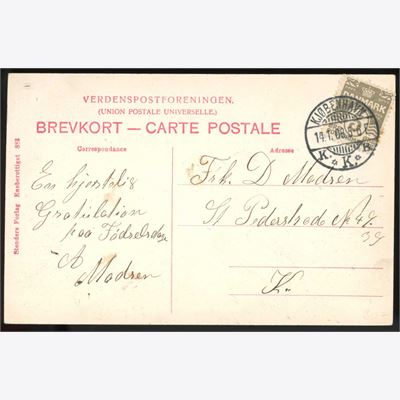 VERDENSPOSTFORENINGEN.
(UNION POSTALE UNIVERSELLE.)
BREVKORT — CARTE POSTALE
Correspondance
Adresse
Stenders Forlag Eneberettiget 882
KJØBENHAVN
14.1.08
K. K. B.
DANMARK
En hjertelig
Gratulation
paa Fødselsdage
A Madsen
Frk. D Madsen
St Pederstræde № 49.
K.